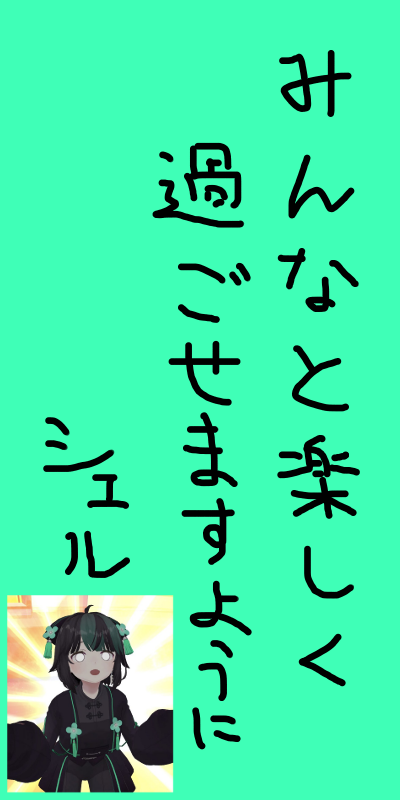 みんなと楽しく
過ごせますように
シェル